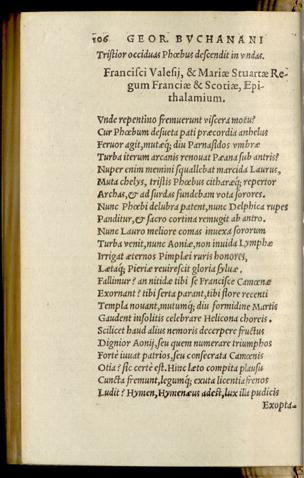 106 GEOR. BVCHANANI
Tristior occiduas Phœbus descendit in vndas.
Francisci Valesij, & Mariæ Stuartæ Re-
gum Franciæ & Scotiæ, Epi-
thalamium.
Vnde repentino fremuerunt viscera motu?
Cur Phœbum desueta pati præcordia anhelus
Feruor agit, mutæq; diu Parnasidos vmbræ
Turba iterum arcanis renouat Pæana sub antris?
Nuper enim memini squallebat marcida Laurus,
Muta chelys, tristis Phœbus citharæq; repertor
Archas, & ad surdas fundebam vota sorores.
Nunc Phœbi delubra patent, nunc Delphica rupes
Panditur, & sacro cortina remugit ab antro.
Nunc Lauro meliore comas inuexa sororum
Turba venit, nunc Aoniæ, non inuida Lymphæ
Irrigat æternos Pimplæi ruris honores,
Lætaq; Pieriæ reuirescit gloria syluæ.
Fallimur? an nitidæ tibi se Francisce Camœnæ
Exornant? tibi serta parant, tibi flore recenti
Templa nouant, mutumq; diu formidine Martis
Gaudent insolitis celebrare Helicona choreis.
Scilicet haud alius nemoris decerpere fructus
Dignior Aonij, seu quem numerare triumphos
Fortè iuuat patrios, seu consecrata Camœnis
Otia? sic certè est. Hinc læto compita plausu
Cuncta fremunt, legumq; exuta licentia frenos
Ludit? Hymen, Hymenæus adest, lux illa pudicis
Exopta-